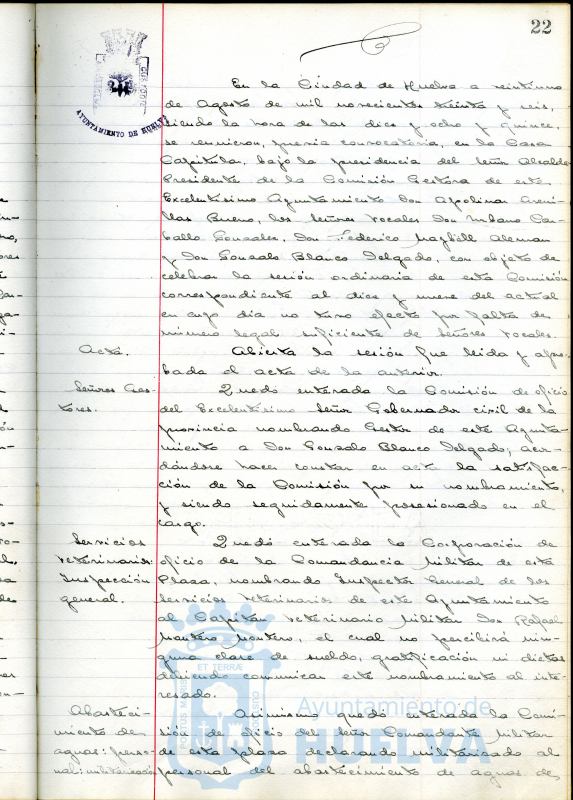 22
AYUNTAMIENTO DE HUELVA
En la Ciudad de Huelva a veintiuno
de Agosto de mil novecientos treinta y seis,
siendo la hora de las diez y ocho y quince,
se reunieron, previa convocatoria, en la Casa
Capitular, bajo la presidencia del señor Alcalde
Presidente de la Comisión Gestora de este
Excelentísimo Ayuntamiento Don Apolinar Areni-
llas Bueno, los señores Vocales Don Urbano Car-
ballo Gonzalez, Don Federico Aleman
y Don Gonzalo Blanco Delgado, con objeto de
celebrar la sesión ordinaria de esta Comisión
correspondiente al diez y nueve del actual
en cuyo dia no tuvo efecto por falta de
número legal suficiente de señores Vocales.
Acta.
Abierta la sesión fue leida y apro-
bada el acta de la anterior.
Señores Ges-
tores.
Quedó enterada la Comisión de oficio
del Excelentísimo Señor Gobernador civil de la
provincia nombrando Gestor de este Ayunta-
miento a Don Gonzalo Blanco Delgado, acor-
dándose hacer constar en acta la satisfac-
ción de la Comisión por su nombramiento,
y siendo seguidamente posesionado en el
cargo.
Servicios
veterinarios:
Inspección
general.
Quedó enterada la Corporación de
oficio de la Comandancia Militar de esta
Plaza, nombrando Inspector General de los
servicios Veterinarios de este Ayuntamiento
al Capitán Veterinario Militar Don Rafael
Montero Montero, el cual no percibirá nin-
guna clase de sueldo, gratificación ni dietas
debiendo comunicar este nombramiento al inte-
resado.
Abasteci-
miento de
aguas: perso-
nal: militarización
Asimismo quedó enterada la Comi-
sión de oficio del señor Comandante Militar
de esta plaza declarando militarizado al
personal del abastecimiento de aguas de
Ayuntamiento de
HUELVA
ET TERRÆ